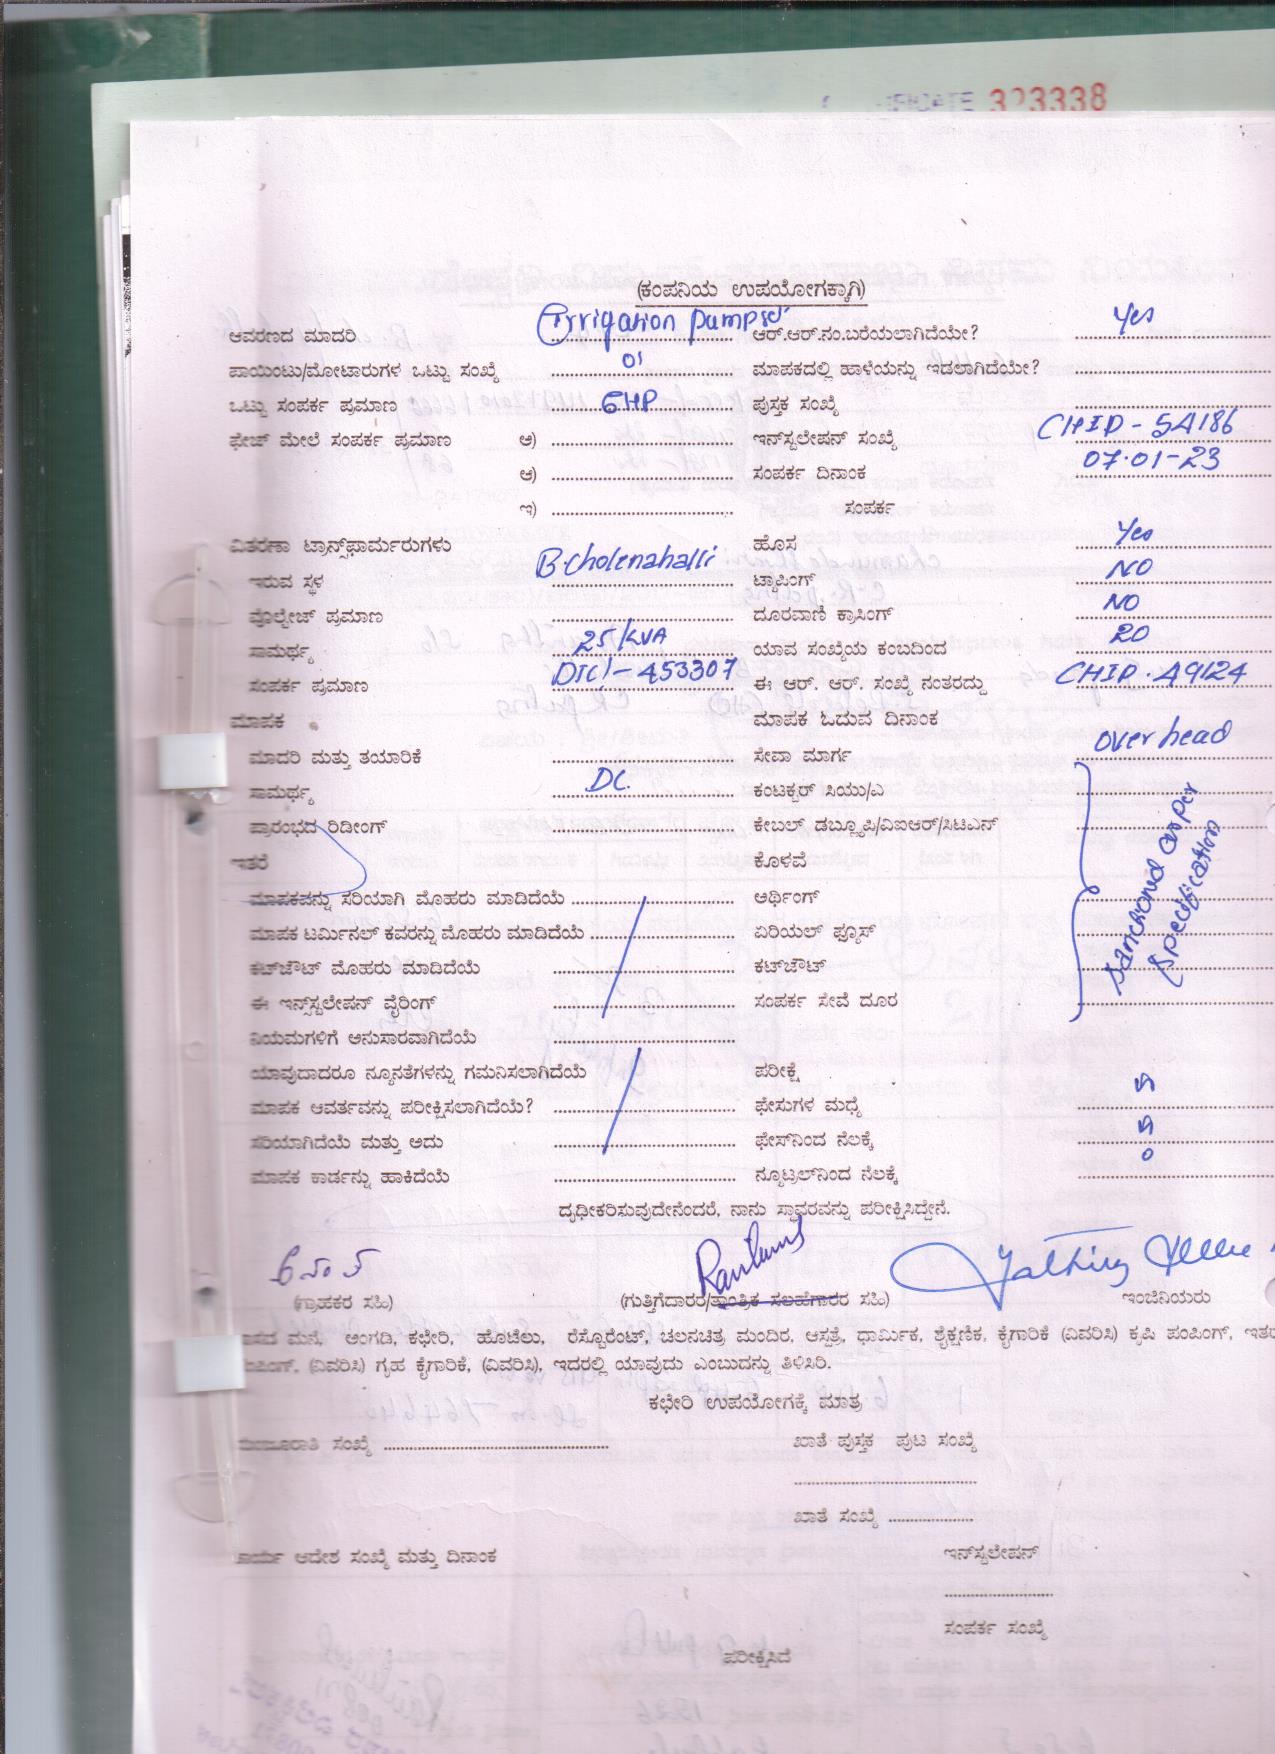 323338
(ಕಂಪನಿಯ ಉಪಯೋಗಕ್ಕಾಗಿ)
ಆವರಣದ ಮಾದರಿ Irrigation Pumpset ಆರ್.ಆರ್.ನಂ.ಬರೆಯಲಾಗಿದೆಯೇ? Yes
ಪಾಯಿಂಟು/ಮೋಟಾರುಗಳ ಒಟ್ಟು ಸಂಖ್ಯೆ 01 ಮಾಪಕದಲ್ಲಿ ಹಾಳೆಯನ್ನು ಇಡಲಾಗಿದೆಯೇ?
ಒಟ್ಟು ಸಂಪರ್ಕ ಪ್ರಮಾಣ 6HP ಪುಸ್ತಕ ಸಂಖ್ಯೆ
ಫೇಜ್ ಮೇಲೆ ಸಂಪರ್ಕ ಪ್ರಮಾಣ ಅ) ಇನ್‌ಸ್ಟಲೇಷನ್ ಸಂಖ್ಯೆ CHIP - 5A186
ಆ) ಸಂಪರ್ಕ ದಿನಾಂಕ 07.01-23
ಇ) ಸಂಪರ್ಕ
ವಿತರಣಾ ಟ್ರಾನ್ಸ್‌ಫಾರ್ಮರುಗಳು ಹೊಸ Yes
ಇರುವ ಸ್ಥಳ B.cholenahalli ಟ್ಯಾಪಿಂಗ್ NO
ವೊಲ್ಟೇಜ್ ಪ್ರಮಾಣ ದೂರವಾಣಿ ಕ್ರಾಸಿಂಗ್ NO
ಸಾಮರ್ಥ್ಯ 25/KVA ಯಾವ ಸಂಖ್ಯೆಯ ಕಂಬದಿಂದ 20
ಸಂಪರ್ಕ ಪ್ರಮಾಣ DTC/-453307 ಈ ಆರ್. ಆರ್. ಸಂಖ್ಯೆ ನಂತರದ್ದು CHIP.A9124
ಮಾಪಕ ಮಾಪಕ ಓದುವ ದಿನಾಂಕ
ಮಾದರಿ ಮತ್ತು ತಯಾರಿಕೆ ಸೇವಾ ಮಾರ್ಗ overhead
ಸಾಮರ್ಥ್ಯ DC. ಕಂಟಕ್ಟರ್ ಸಿಯು/ಎ
ಪ್ರಾರಂಭದ ರಿಡೀಂಗ್ ಕೇಬಲ್ ಡಬ್ಲ್ಯೂಪಿ/ವಿಐಆರ್/ಸಿಟಿಎಸ್
ಇತರೆ ಕೊಳವೆ
ಮಾಪಕವನ್ನು ಸರಿಯಾಗಿ ಮೊಹರು ಮಾಡಿದೆಯೆ ಆರ್ಥಿಂಗ್
ಮಾಪಕ ಟರ್ಮಿನಲ್ ಕವರನ್ನು ಮೊಹರು ಮಾಡಿದೆಯೆ ಏರಿಯಲ್ ಫ್ಯೂಸ್
ಕಟ್‌ಔಟ್ ಮೊಹರು ಮಾಡಿದೆಯೆ ಕಟ್‌ಔಟ್
ಈ ಇನ್‌ಸ್ಟಲೇಷನ್ ವೈರಿಂಗ್ ಸಂಪರ್ಕ ಸೇವೆ ದೂರ
Sanctioned as per
Specification
ನಿಯಮಗಳಿಗೆ ಅನುಸಾರವಾಗಿದೆಯೆ
ಯಾವುದಾದರೂ ನ್ಯೂನತೆಗಳನ್ನು ಗಮನಿಸಲಾಗಿದೆಯೆ ಪರೀಕ್ಷೆ
ಮಾಪಕ ಆವರ್ತವನ್ನು ಪರೀಕ್ಷಿಸಲಾಗಿದೆಯೆ? ಫೇಸುಗಳ ಮಧ್ಯೆ
ಸರಿಯಾಗಿದೆಯೆ ಮತ್ತು ಅದು ಫೇಸ್‌ನಿಂದ ನೆಲಕ್ಕೆ
ಮಾಪಕ ಕಾರ್ಡನ್ನು ಹಾಕಿದೆಯೆ ನ್ಯೂಟ್ರಲ್‌ನಿಂದ ನೆಲಕ್ಕೆ 0
ದೃಢೀಕರಿಸುವುದೇನೆಂದರೆ, ನಾನು ಸ್ಥಾವರವನ್ನು ಪರೀಕ್ಷಿಸಿದ್ದೇನೆ.
(ಗ್ರಾಹಕರ ಸಹಿ) (ಗುತ್ತಿಗೆದಾರರ/ತಾಂತ್ರಿಕ ಸಲಹೆಗಾರರ ಸಹಿ) ಇಂಜಿನಿಯರು
ವಾಸದ ಮನೆ, ಅಂಗಡಿ, ಕಛೇರಿ, ಹೊಟೇಲು, ರೆಸ್ಟೊರೆಂಟ್, ಚಲನಚಿತ್ರ ಮಂದಿರ, ಆಸ್ಪತ್ರೆ, ಧಾರ್ಮಿಕ, ಶೈಕ್ಷಣಿಕ, ಕೈಗಾರಿಕೆ (ವಿವರಿಸಿ) ಕೃಷಿ ಪಂಪಿಂಗ್, ಇತರ
ಪಂಪಿಂಗ್, (ವಿವರಿಸಿ) ಗೃಹ ಕೈಗಾರಿಕೆ, (ವಿವರಿಸಿ), ಇದರಲ್ಲಿ ಯಾವುದು ಎಂಬುದನ್ನು ತಿಳಿಸಿರಿ.
ಕಛೇರಿ ಉಪಯೋಗಕ್ಕೆ ಮಾತ್ರ
ಮಂಜೂರಾತಿ ಸಂಖ್ಯೆ ಖಾತೆ ಪುಸ್ತಕ ಪುಟ ಸಂಖ್ಯೆ
ಖಾತೆ ಸಂಖ್ಯೆ
ಕಾರ್ಯ ಆದೇಶ ಸಂಖ್ಯೆ ಮತ್ತು ದಿನಾಂಕ ಇನ್‌ಸ್ಟಲೇಷನ್
ಸಂಪರ್ಕ ಸಂಖ್ಯೆ
ಪರೀಕ್ಷಿಸಿದೆ